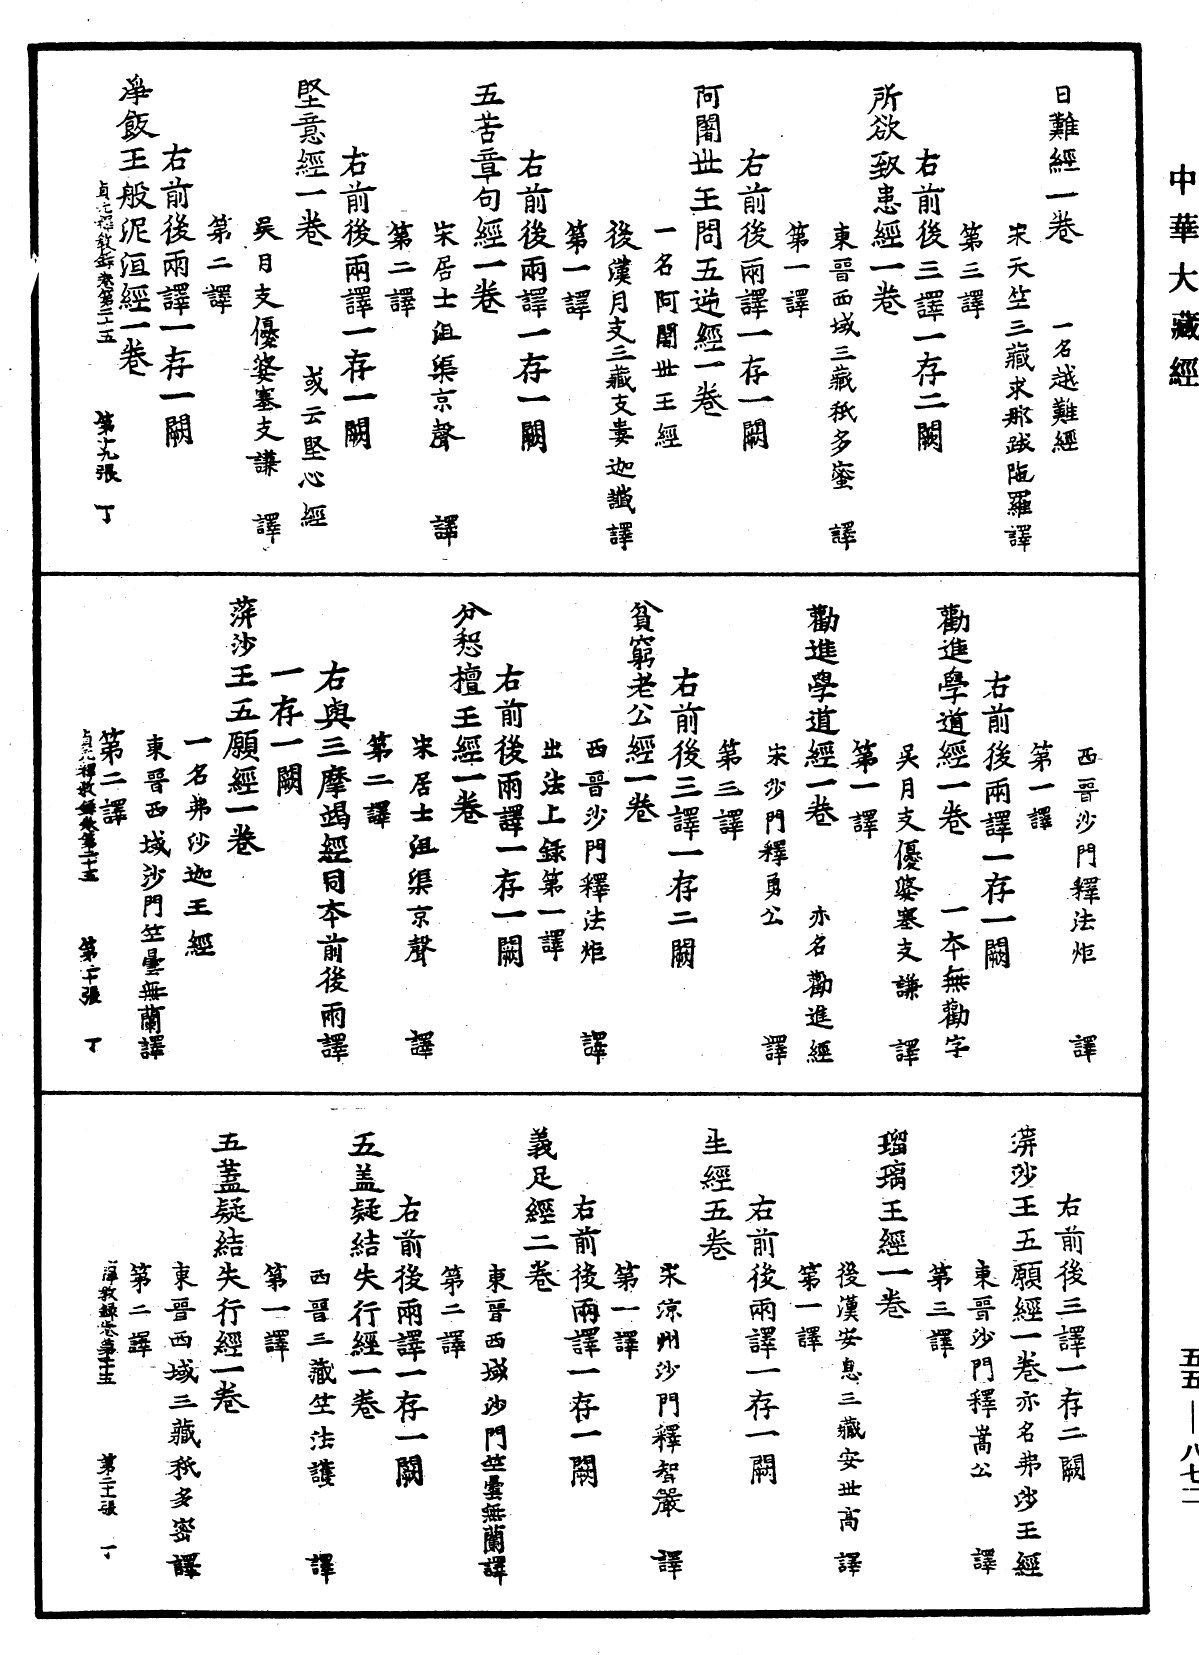 中華大藏經
日難經一卷 一名越難經
宋天竺三藏求那跋陁羅譯
第三譯
右前後三譯一存二闕
所欲致患經一卷
東晉西域三藏秖多蜜 譯
第一譯
右前後兩譯一存一闕
阿闍世王問五逆經一卷
一名阿闍世王經
後漢月支三藏支婁迦讖譯
第一譯
右前後兩譯一存一闕
五苦章句經一卷
宋居士沮渠京聲 譯
第二譯
右前後兩譯一存一闕
堅意經一卷 或云堅心經
吳月支優婆塞支謙 譯
第二譯
右前後兩譯一存一闕
淨飯王般泥洹經一卷
貞元釋教錄卷第二十五 第十九張 丁
西晉沙門釋法炬 譯
第一譯
右前後兩譯一存一闕
勸進學道經一卷 一本無勸字
吳月支優婆塞支謙 譯
第一譯
勸進學道經一卷 亦名勸進經
宋沙門釋勇公 譯
第三譯
右前後三譯一存二闕
貧窮老公經一卷
西晉沙門釋法炬 譯
出法上錄第一譯
右前後兩譯一存一闕
分惒檀王經一卷
宋居士沮渠京聲 譯
第二譯
右與三摩竭經同本前後兩譯
一存一闕
蓱沙王五願經一卷
一名弗沙迦王經
東晉西域沙門竺曇無蘭譯
第二譯
貞元釋教錄卷第二十五 第二十張 丁
右前後三譯一存二闕
蓱沙王五願經一卷亦名弗沙王經
東晉沙門釋嵩公 譯
第三譯
瑠璃王經一卷
後漢安息三藏安世高 譯
第一譯
右前後兩譯一存一闕
生經五卷
宋涼州沙門釋智嚴 譯
第一譯
右前後兩譯一存一闕
義足經二卷
東晉西域沙門竺曇無蘭譯
第二譯
右前後兩譯一存一闕
五蓋疑結失行經一卷
西晉三藏竺法護 譯
第一譯
五蓋疑結失行經一卷
東晉西域三藏秖多密譯
第二譯
釋教錄卷第二十五 第二十一張 丁
五五—八七二